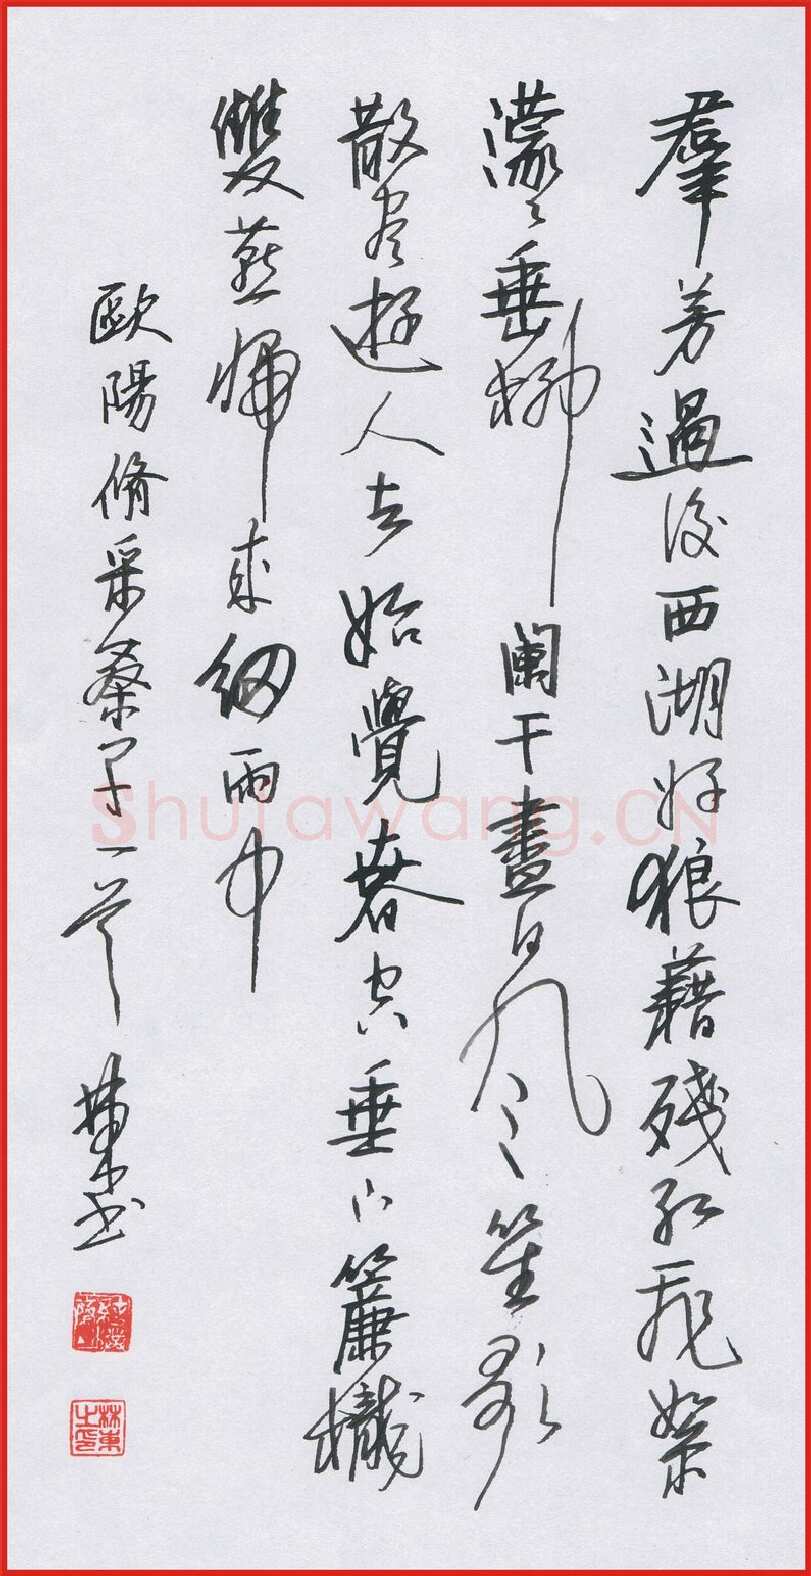 羣芳過後西湖好狼藉殘紅飛絮
濛々垂柳闌干盡日風笙歌
散尽遊人去始覺春空垂下簾櫳
雙燕歸來細雨中
歐陽脩采桑子一首 林東书
林東之印
Shufawang.CN